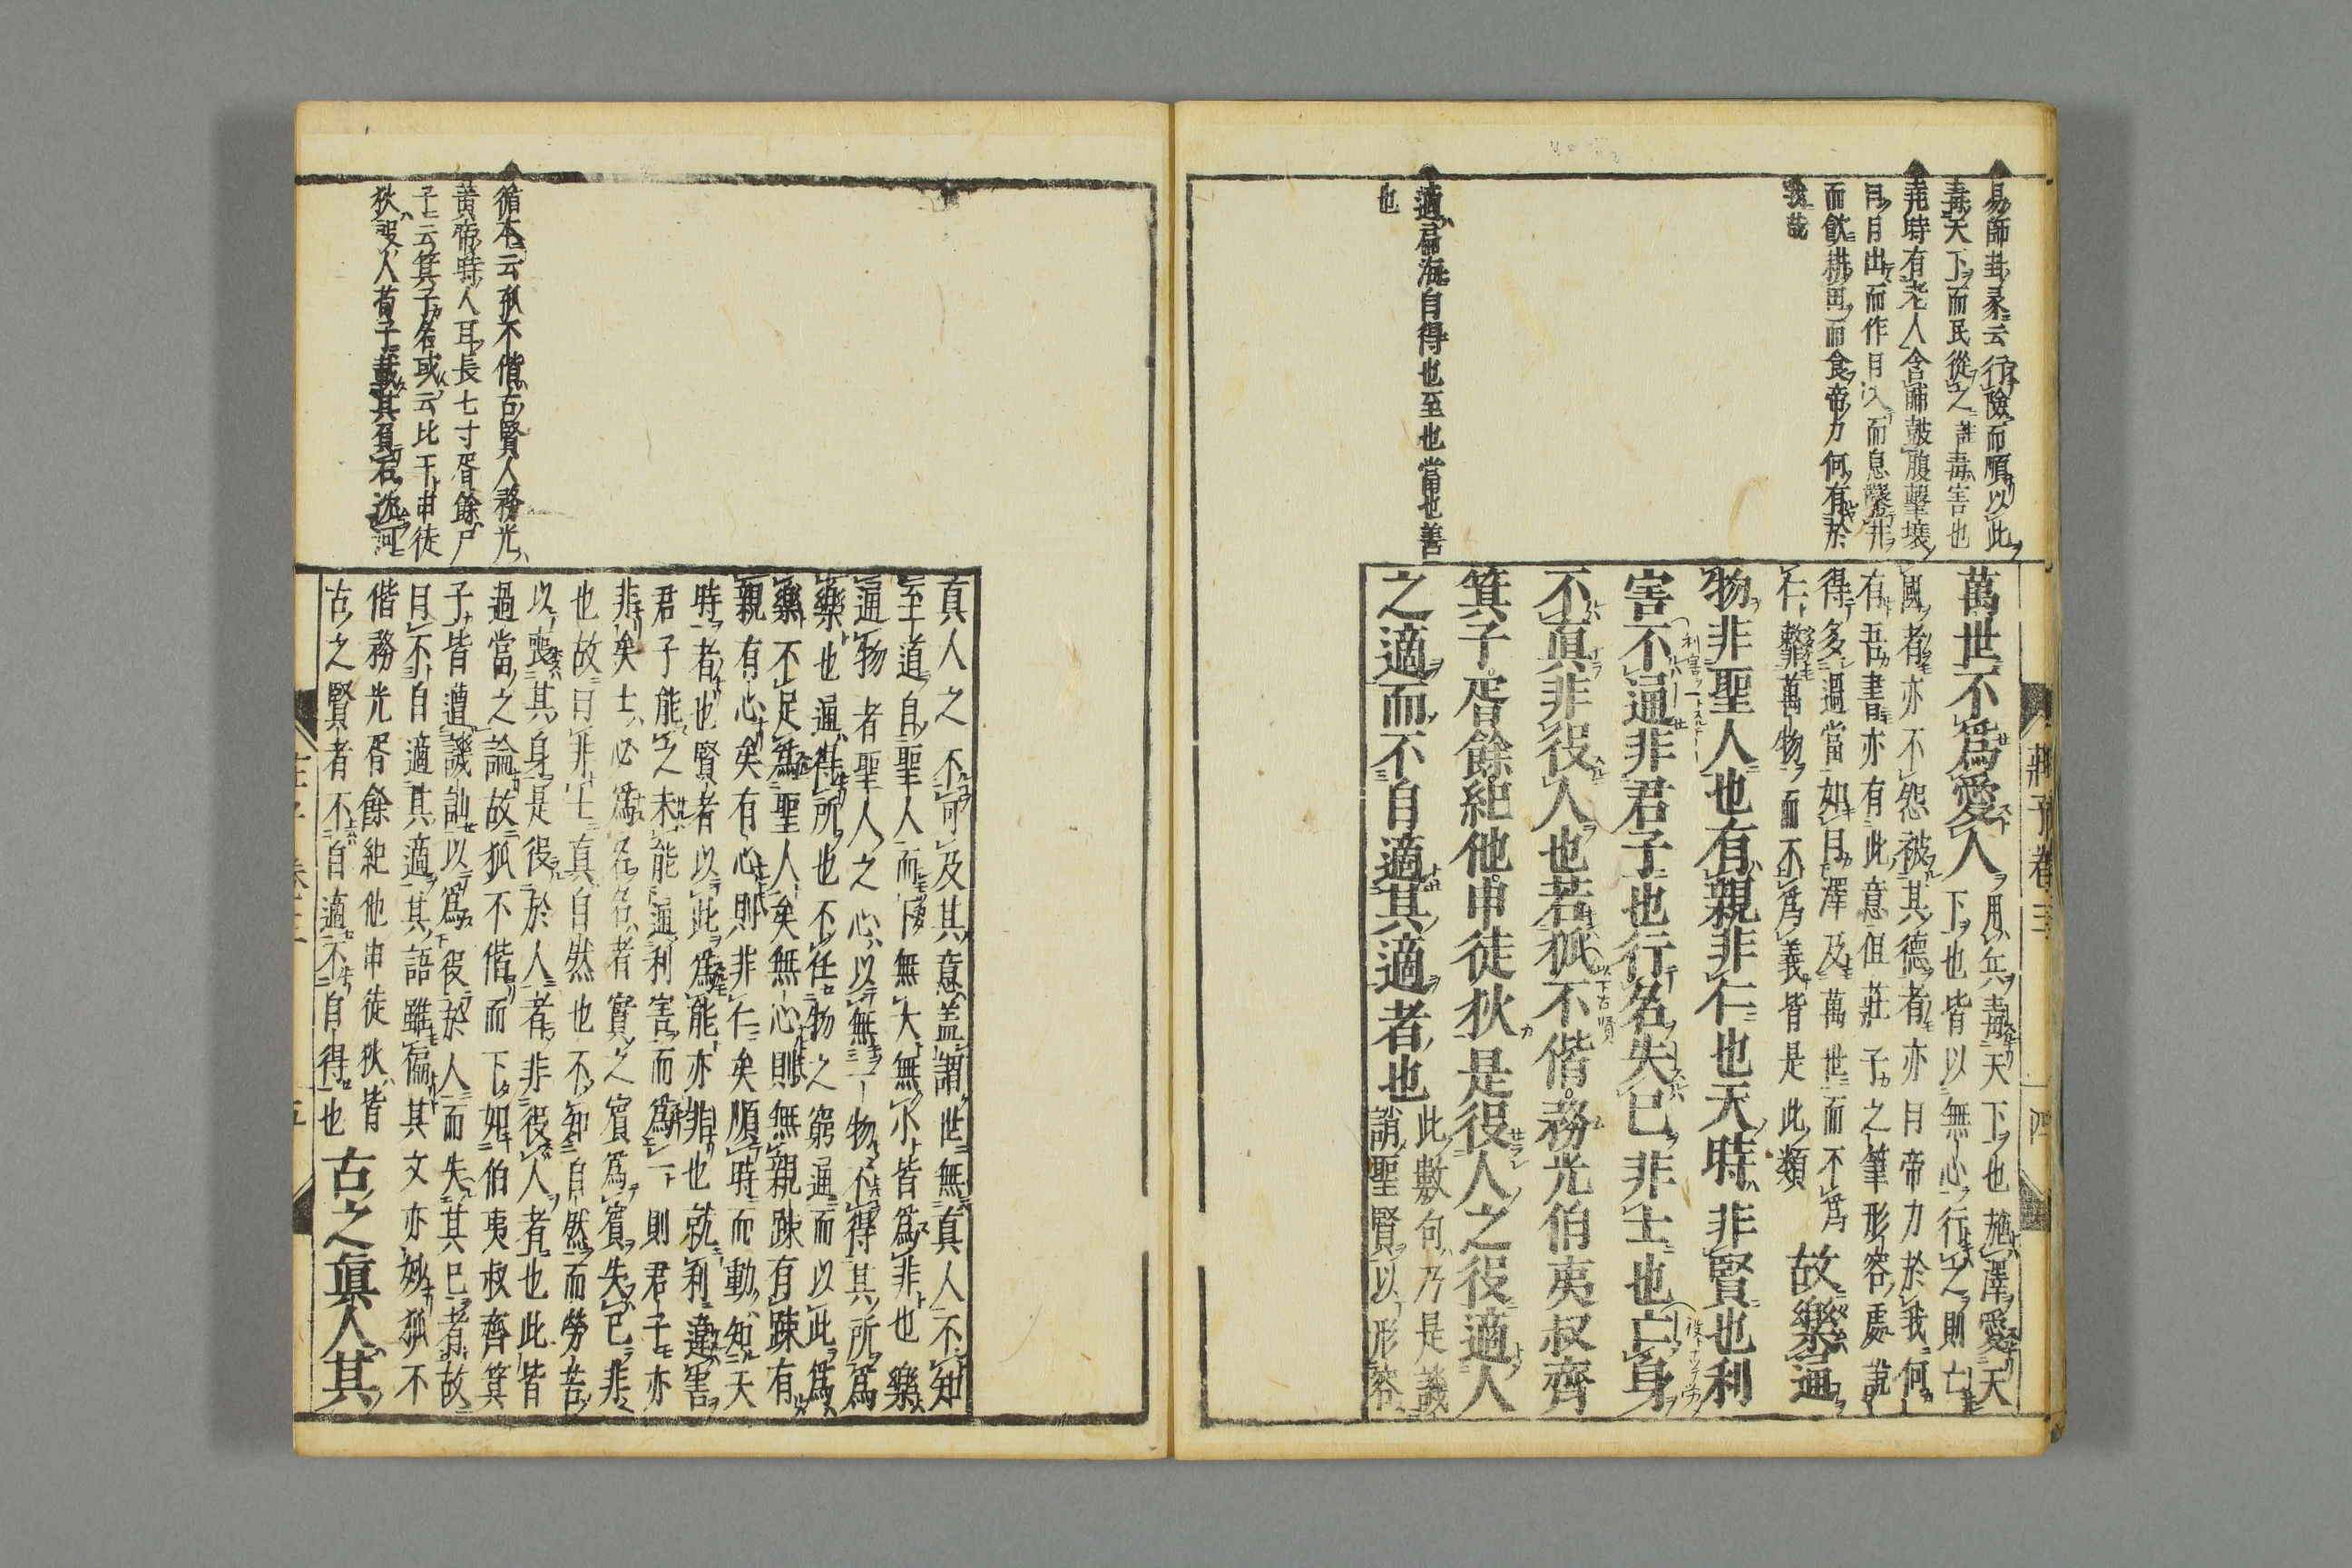 易師卦彖云行險而順以此
毒天下而民從之毒害也
堯時有老人含哺鼓腹擊壤
曰日出而作日入而息鑿井
而飲耕田而食帝力何有於
我哉
適扁海自得也至也當也善
也
萬世不爲愛人用兵毒天下也施澤愛天
下也皆以無心行之則亡
國者亦不怨被其德者亦曰帝力於我何
有吾書亦有此意但莊子之筆形容處説
得多過當如曰澤及萬世而不爲
仁䪠萬物而不爲義皆是此類
故樂通
物非聖人也有親非仁也天時非賢也利
害不通非君子也行名失已非士也亡身
不眞非役人也若狐不偕務光伯夷叔齊
箕子胥餘紀他申徒狄是役人之役適人
之適而不自適其適者也
此數句乃是譏
誚聖賢以形容
莊子卷三
四
循本云狐不偕古賢人務光
黄帝時人耳長七寸胥餘尸
子云箕子名或云比干申徒
狄殷人荀子載其負石沈河
眞人之不可及其意盖謂世無真人不知
至道自聖人而下無大無小皆爲非也樂
通物者聖人之心以無一物不得其所爲
樂也通得所也不任物之窮通而以此爲
樂不足爲聖人矣無心則無親踈有踈有
親有心矣有心則非仁矣順時而動知天
時者也賢者以此爲能亦非也就利違害
君子能之未能通利害而爲一則君子亦
非矣士必爲名名者實之賓爲賓失已非
也故曰非士真自然也不知自然而勞苦
以喪其身是役於人者非役人者也此皆
過當之論故狐不偕而下如伯夷叔齊箕
子皆遭譏訕以爲役於人而失其已者故
曰不自適其適其語雖偏其文亦妙狐不
偕務光胥餘紀他申徒狄皆
古之賢者不自適不自得也
古之眞人其
五